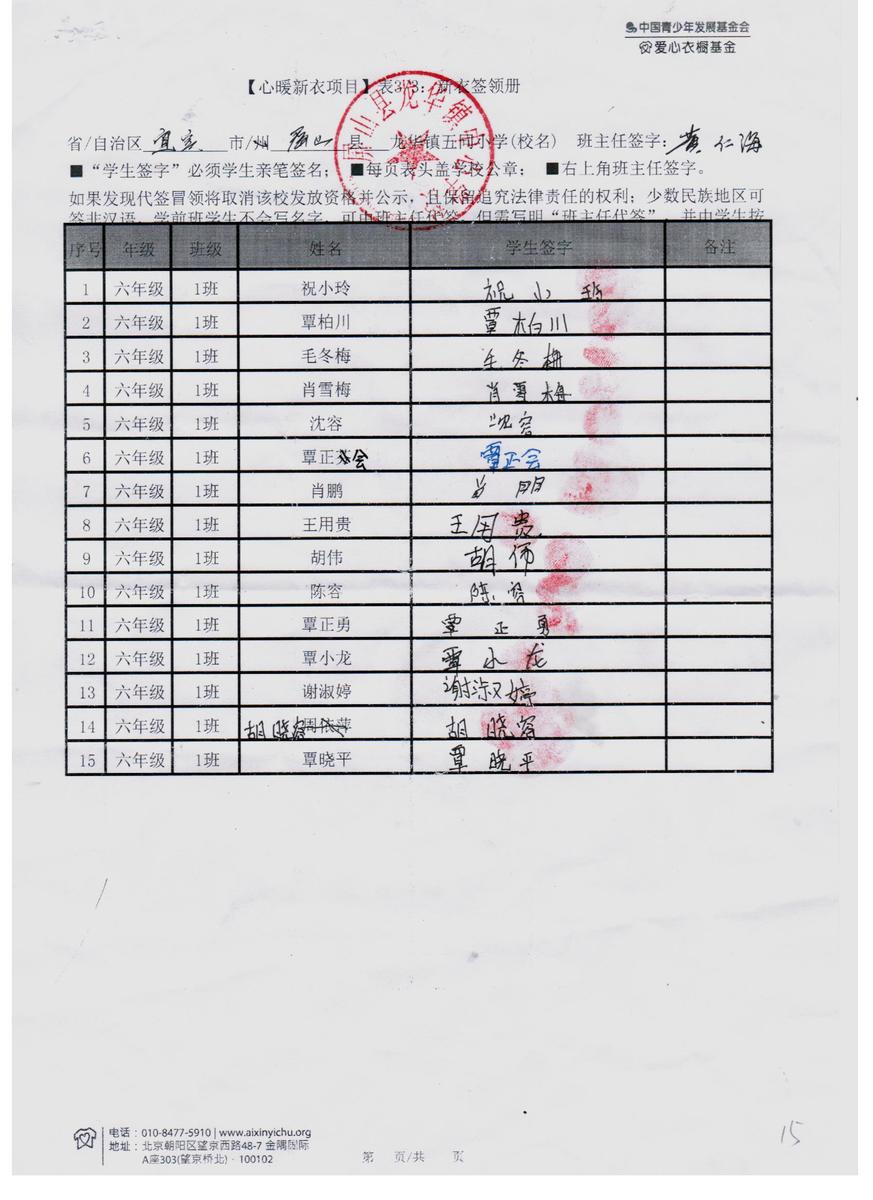 中国青少年发展基金会
爱心衣橱基金
【心暖新衣项目】表3-3：新衣签领册
省/自治区 宜宾 市/州 屏山 县 龙华镇五可小学(校名) 班主任签字: 黄仁海
■“学生签字”必须学生亲笔签名； ■每页表头盖学校公章； ■右上角班主任签字。
如果发现代签冒领将取消该校发放资格并公示，且保留追究法律责任的权利；少数民族地区可
签非汉语，学前班学生不会写名字，可由班主任代签，但需写明“班主任代签”，并由学生按
序号 年级 班级 姓名 学生签字 备注
1 六年级 1班 祝小玲 祝小玲
2 六年级 1班 覃柏川 覃柏川
3 六年级 1班 毛冬梅 毛冬梅
4 六年级 1班 肖雪梅 肖雪梅
5 六年级 1班 沈容 沈容
6 六年级 1班 覃正会 覃正会
7 六年级 1班 肖鹏 肖朋
8 六年级 1班 王用贵 王用贵
9 六年级 1班 胡伟 胡伟
10 六年级 1班 陈容 陈容
11 六年级 1班 覃正勇 覃正勇
12 六年级 1班 覃小龙 覃小龙
13 六年级 1班 谢淑婷 谢淑婷
14 六年级 1班 胡晓容 胡晓容
15 六年级 1班 覃晓平 覃晓平
电话：010-8477-5910 | www.aixinyichu.org
地址：北京朝阳区望京西路48-7 金隅国际
A座303(望京桥北) · 100102
第 页/共 页
15